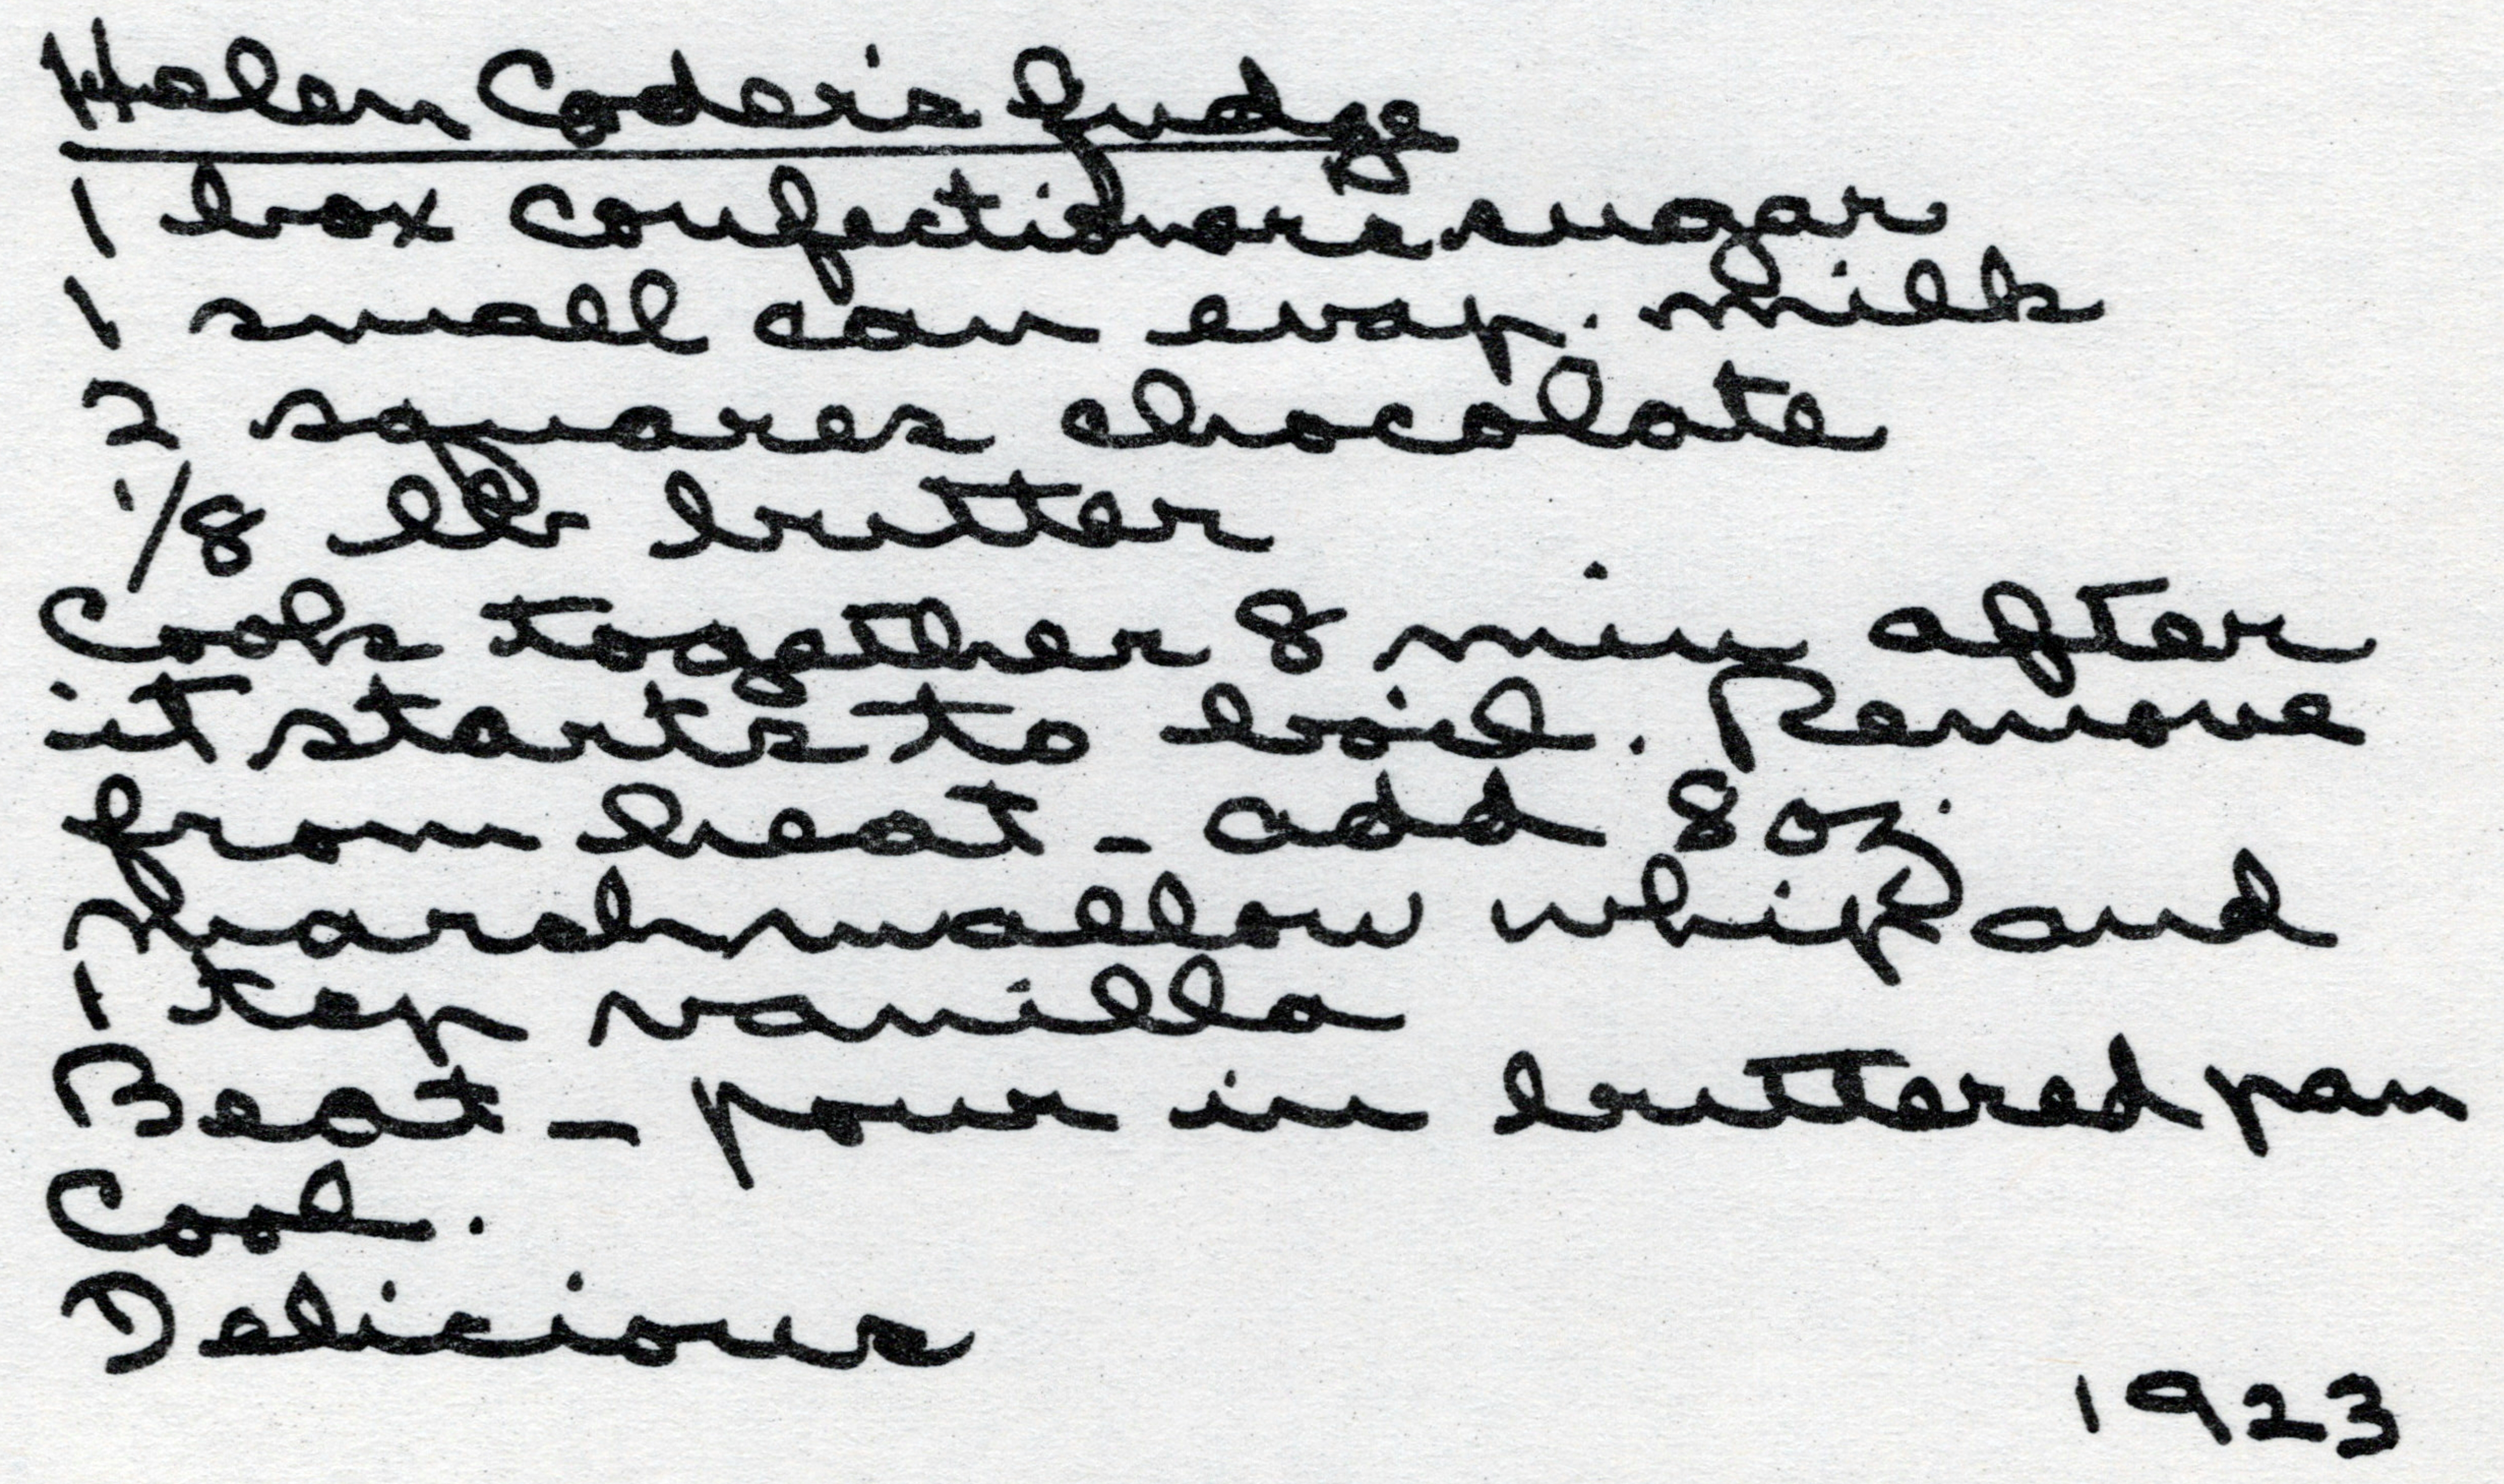 Helen Coder's Fudge
1 box confectioners sugar
1 small can evap. milk
2 squares chocolate
1/8 lb butter
Cook together 8 min after
it starts to boil. Remove
from heat - add 8 oz.
marshmallow whip and
1 tsp vanilla
Beat - pour in buttered pan
Cool.
Delicious
1923